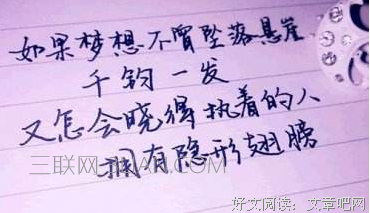 如果梦想不曾坠落悬崖
千钧一发
又怎会晓得执着的人
拥有隐形翅膀
三联网 3LIAN.COM
好文阅读：文章吧网